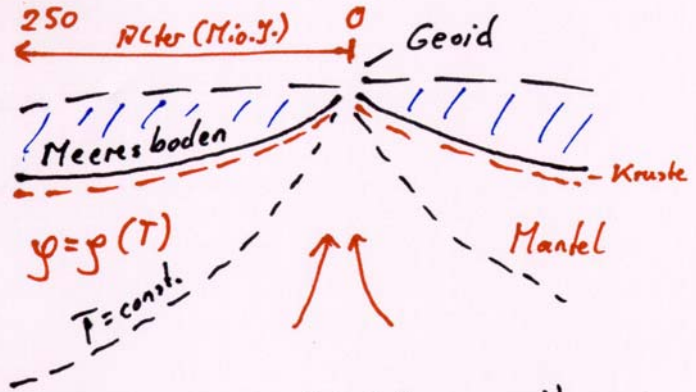 250
0
Alter (Mio. J.)
Geoid
Meeresboden
Kruste
ρ=ρ(T)
Mantel
T=const.